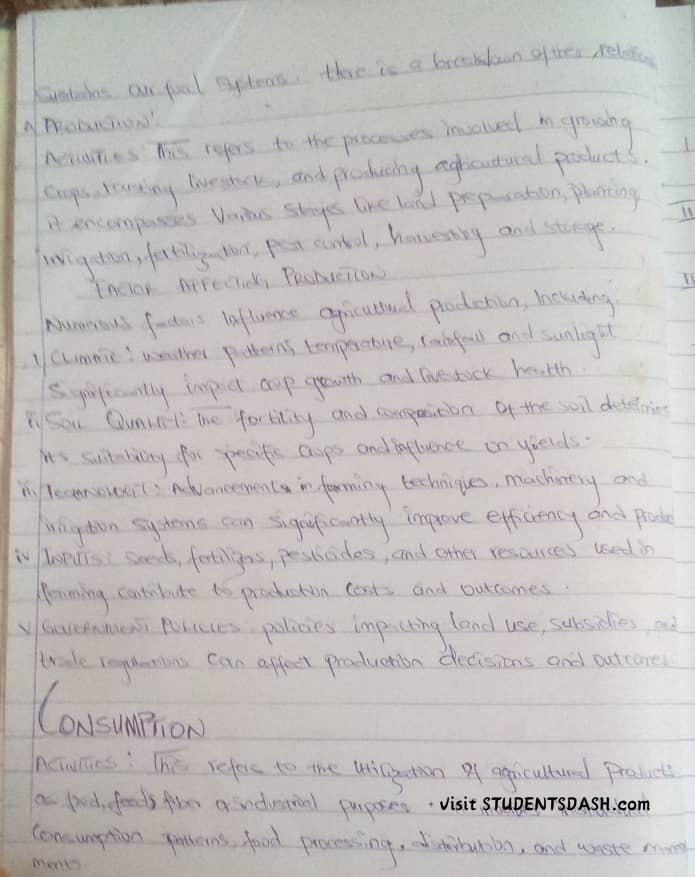 Sustains our food systems. there is a breakdown of their relation
A PRODUCTION:
ACTIVITIES This refers to the processes involved in growing
Crops, livestock, and producing agricultural products.
it encompasses Various stages like land preparation, planting
irrigation, fertilization, pest control, harvesting and storage.
FACTOR AFFECTING PRODUCTION
Numerous factors Influence agricultural production, Including:
i, CLIMATE: weather patterns, temperature, rainfall and sunlight
Significantly impact crop growth and livestock health.
ii, SOIL QUALITY: The fertility and composition of the soil determine
its suitability for specific crops and influence on yields.
iii, TECHNOLOGY: Advancements in farming techniques, machinery and
irrigation systems can significantly improve efficiency and
iv INPUTS: Seeds, fertilizers, pesticides, and other resources used in
farming contribute to production costs and outcomes.
v GOVERNMENT POLICIES. policies impacting land use, subsidies, and
trade regulations can affect production decisions and outcomes
CONSUMPTION
ACTIVITIES: This refers to the utilization of agricultural products
as food, feeds, fiber or industrial purposes.
visit STUDENTSDASH.com
Consumption patterns, food processing, distribution, and waste
ments